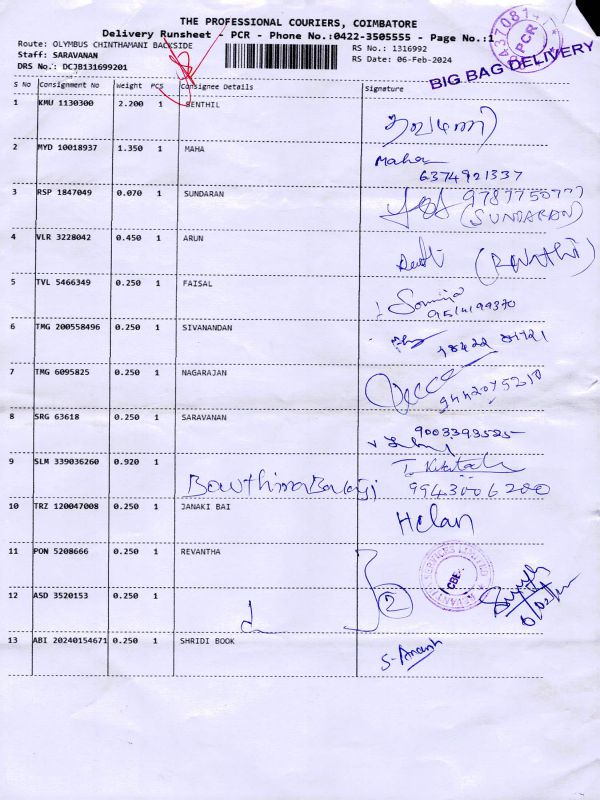 THE PROFESSIONAL COURIERS, COIMBATORE
Delivery Runsheet - PCR - Phone No.:0422-3505555 - Page No.:1
Route: OLYMPUS CHINTHAMANI BACKSIDE
RS No.: 1316992
Staff: SARAVANAN
RS Date: 06-Feb-2024
DRS No.: DCJB131699201
PCR
BIG BAG DELIVERY
S No Consignment No Weight PCS Consignee Details Signature
1 KMU 1130300 2.200 1 SENTHIL
2 MYD 10018937 1.350 1 MAHA Maha
6374921337
3 RSP 1847049 0.070 1 SUNDARAN
(SUNDARAN)
4 VLR 3228042 0.450 1 ARUN
5 TVL 5466349 0.250 1 FAISAL
6 TMG 200558496 0.250 1 SIVANANDAN
7 TMG 6095825 0.250 1 NAGARAJAN
8 SRG 63618 0.250 1 SARAVANAN
9003393525
9 SLM 339036260 0.920 1
9943006200
10 TRZ 120047008 0.250 1 JANAKI BAI Helan
11 PON 5208666 0.250 1 REVANTHA
CBE
12 ASD 3520153 0.250 1 2
13 ABI 20240154671 0.250 1 SHRIDI BOOK S-Anansh